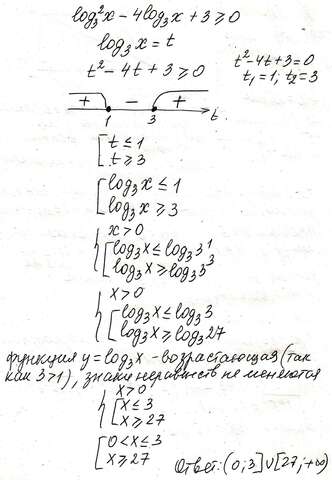 log₃²x - 4log₃x + 3 ≥ 0
log₃x = t
t² - 4t + 3 ≥ 0
t² - 4t + 3 = 0
t₁ = 1; t₂ = 3
+ - +
1 3 t
[ t ≤ 1
t ≥ 3
[ log₃x ≤ 1
log₃x ≥ 3
{ x > 0
[ log₃x ≤ log₃3¹
log₃x ≥ log₃3³
{ x > 0
[ log₃x ≤ log₃3
log₃x ≥ log₃27
функция y = log₃x - возрастающая (так
как 3>1), знаки неравенств не меняются
{ x > 0
[ x ≤ 3
x ≥ 27
[ 0 < x ≤ 3
x ≥ 27
Ответ: (0;3]∪[27;+∞)